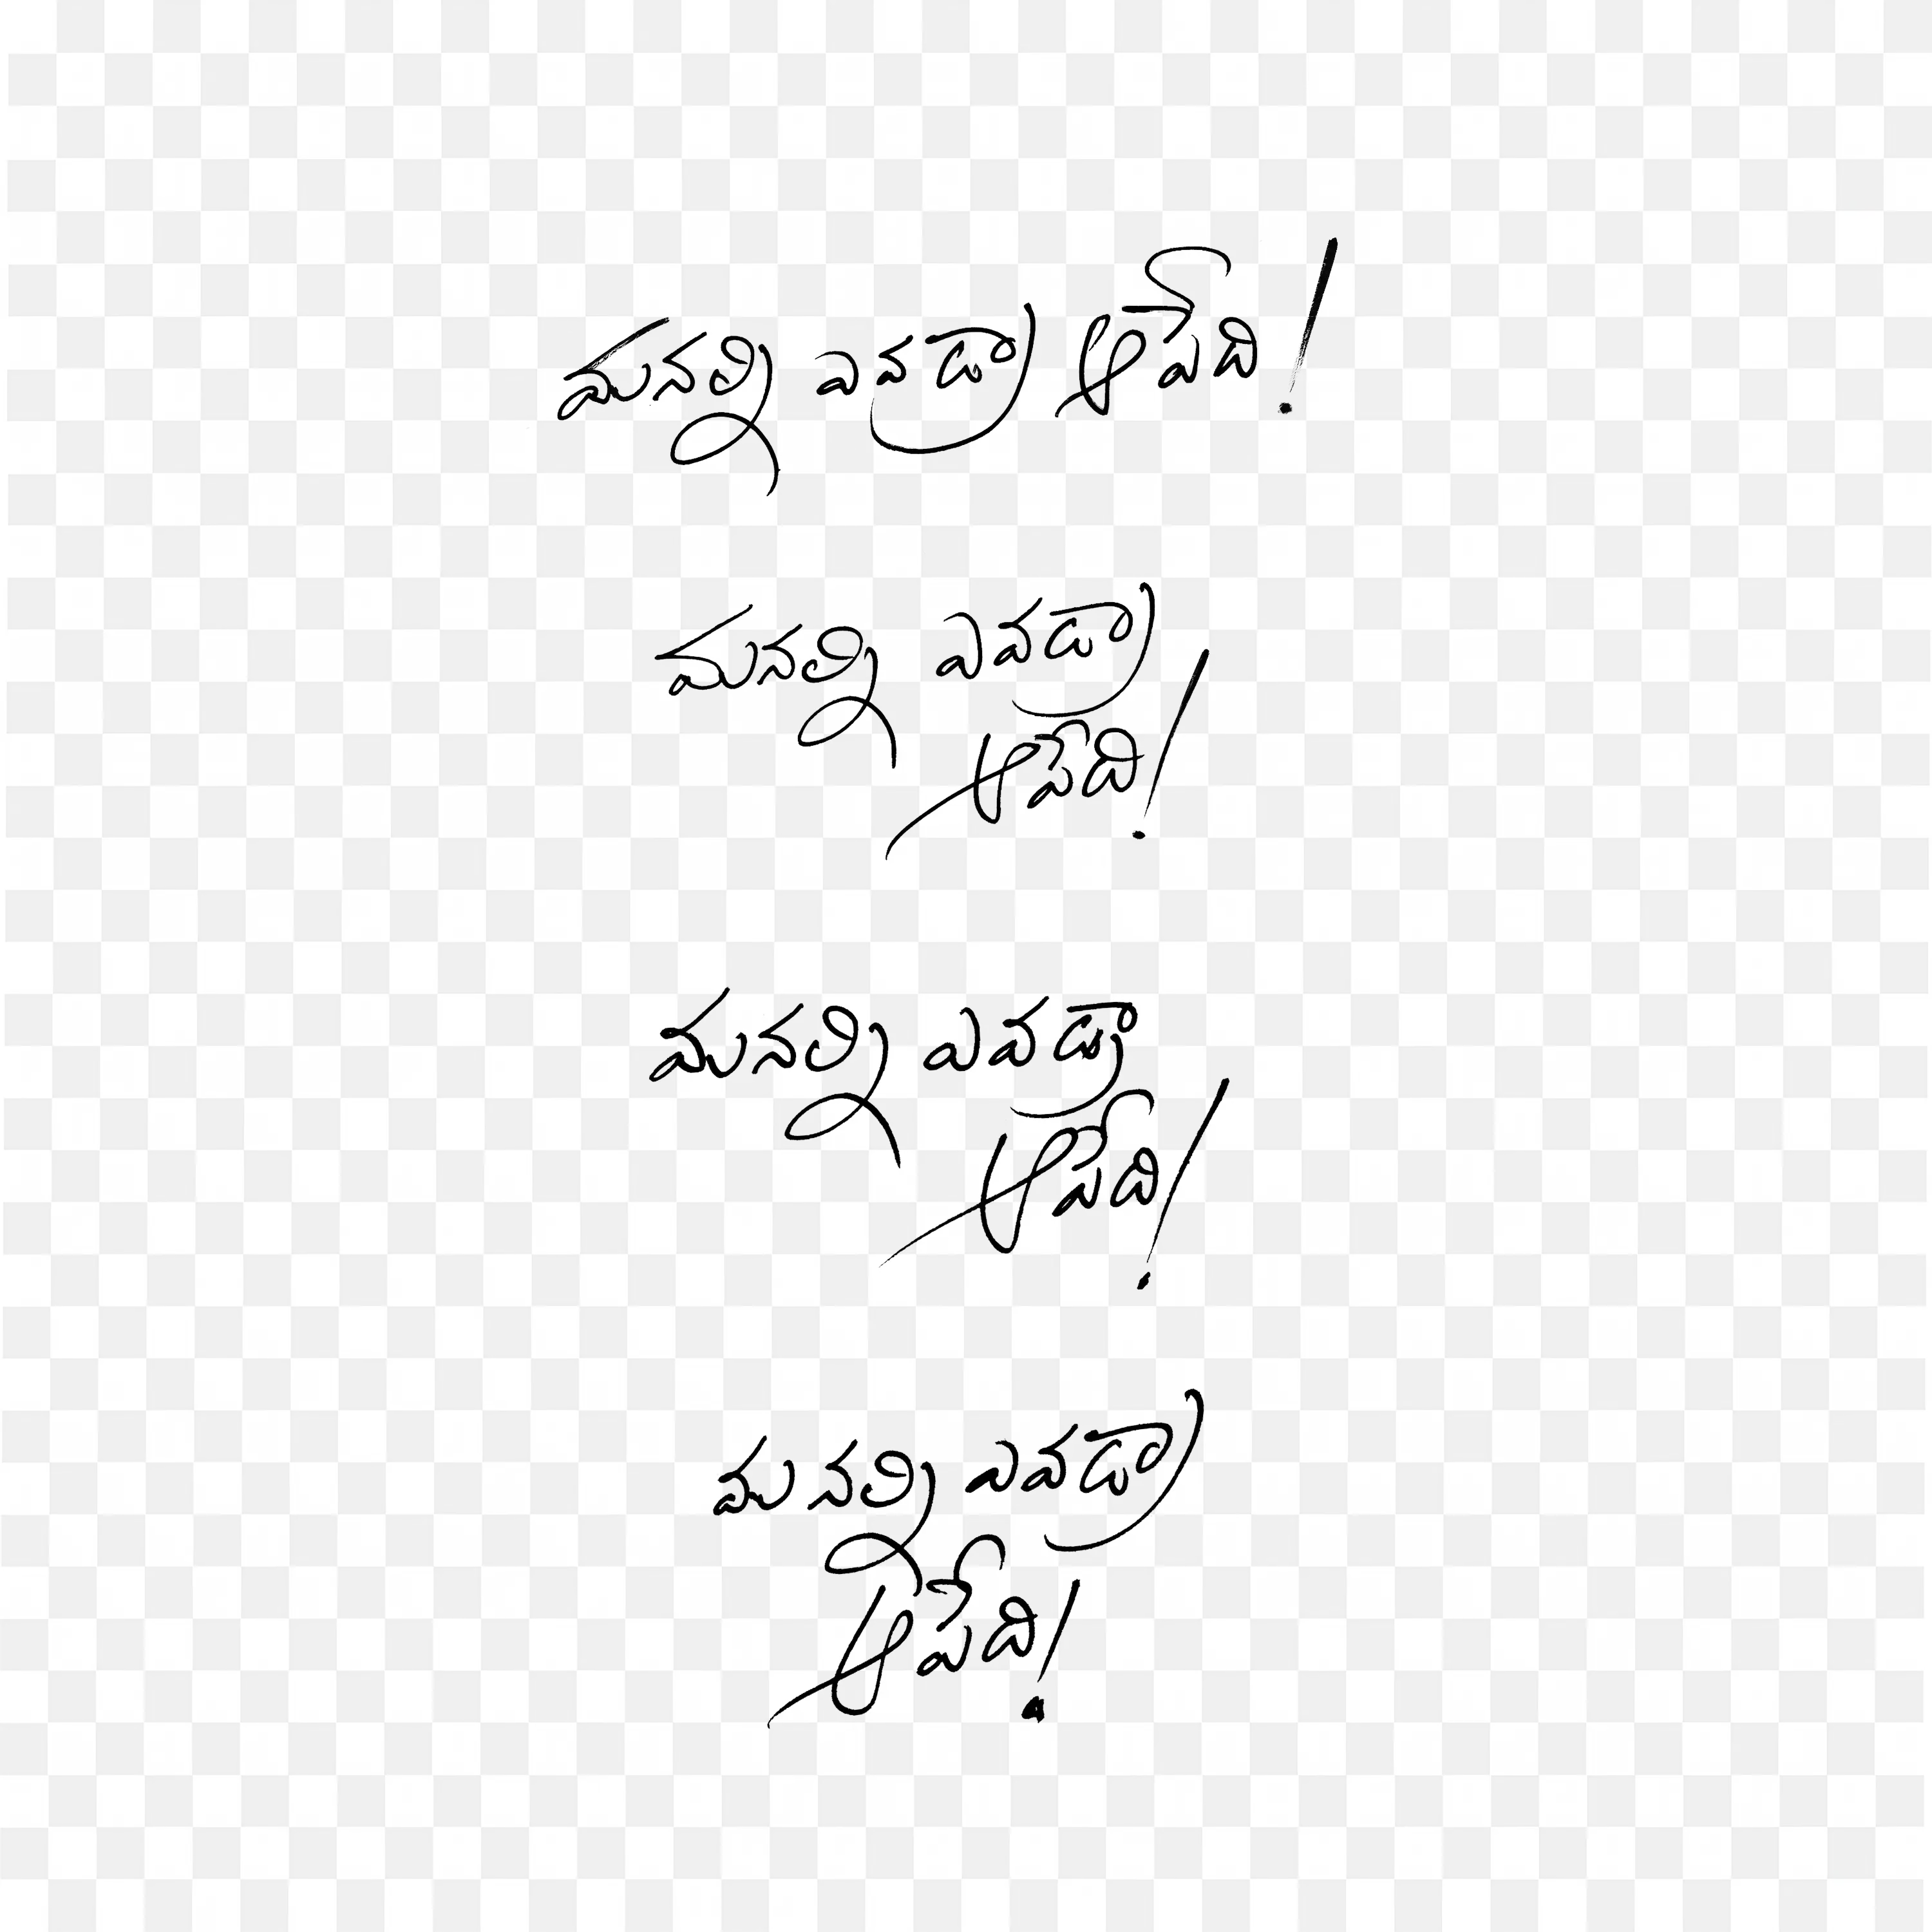 మనల్ని ఎవడ్రా ఆపేది!
మనల్ని ఎవడ్రా
ఆపేది!
మనల్ని ఎవడ్రా
ఆపేది!
మనల్ని ఎవడ్రా
ఆపేది!